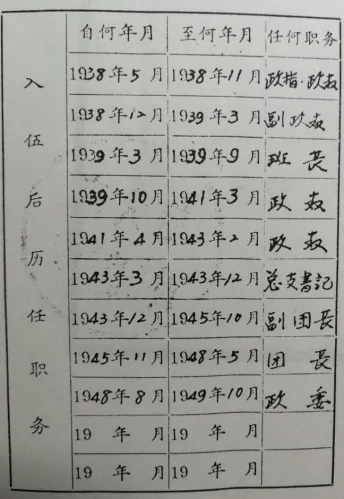 入伍后历任职务
自何年月 至何年月 任何职务
1938年5月 1938年11月 政指·政教
1938年12月 1939年3月 副政教
1939年3月 1939年9月 班长
1939年10月 1941年3月 政教
1941年4月 1943年2月 政教
1943年3月 1943年12月 总支書記
1943年12月 1945年10月 副团长
1945年11月 1948年5月 团长
1948年8月 1949年10月 政委
19 年 月 19 年 月
19 年 月 19 年 月